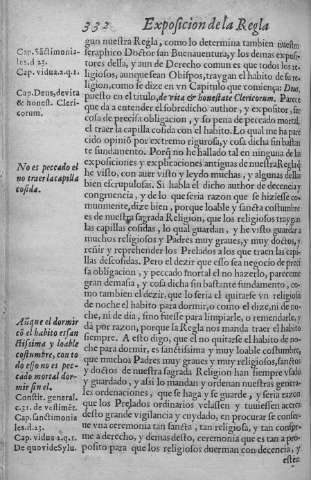 332 Exposicion de la Regla
gun nuestra Regla, como lo determina tambien nuestro
seraphico Doctor san Buenauentura, y los demas exposi-
tores della, y aun de Derecho comun es que todos los re-
ligiosos, aunque sean Obispos, traygan el habito de su re-
ligion, como se dize en vn Capitulo que comiença: Deus,
puesto en el titulo, de vita & honestate Clericorum. Parece
que da a entender el sobredicho author, y expositor, ser
cosa de precisa obligacion, y so pena de peccado mortal,
el traer la capilla cosida con el habito. Lo qual me ha pare
cido opinion por extremo rigurosa, y cosa dicha sin bastan
te fundamento. Porque no he hallado tal en ninguna de las
exposiciones y explicaciones antiguas de nuestra Regla que
he visto, con auer visto y leydo muchas, y algunas dellas
bien escrupulosas. Si habla el dicho author de decencia y
congruencia, y de lo que seria razon que se hiziesse co-
munmente, dize bien, porque loable y sancta costumbre
es de nuestra sagrada Religion, que los religiosos traygan
las capillas cosidas, lo qual guardan, y he visto guardar a
muchos religiosos y Padres muy graues, y muy doctos, y
reñir y reprehender los Prelados a los que traen las capi-
llas descosidas. Pero el dezir que esso sea negocio de preci
sa obligacion, y peccado mortal el no hazerlo, pareceme
gran demasia, y cosa dicha sin bastante fundamento, co-
mo tambien el dezir, que lo seria el quitarse vn religioso
de noche el habito para dormir, o como el dize, ni de no-
che, ni de dia, sino fuesse para limpiarle, o remendarle, y
da por razon, porque la Regla nos manda traer el habito
siempre. A esto digo, que el no quitarse el habito de no-
che para dormir, es sanctissima y muy loable costumbre,
que muchos Padres muy graues y muy religiosos, sanctos
y doctos de nuestra sagrada Religion han siempre vsado
y guardado, y assi lo mandan y ordenan nuestras genera-
les ordenaciones, que se haga y se guarde, y seria razon
que los Prelados ordinarios velassen y tuuiessen acerca
desto grande vigilancia y cuydado, en procurar se conser-
ue vna ceremonia tan sancta, tan religiosa, y tan confor-
me a derecho, y demas desto, ceremonia que es tan a pro-
posito para que los religiosos duerman con decencia, y
estez
Cap. Sãctimonia-
les. d. 23.
Cap. vidua. 2. q. 1.
Cap. Deus, de vita
& honest. Cleri-
corum.
No es peccado el
no traer la capilla
cosida.
Aũque el dormir
cõ el habito es san
ctissima y loable
costumbre, con to
do esso no es pec-
cado mortal dor-
mir sin el.
Constit. general.
Cap. sanctimonia
les. d. 23.
Cap. vidua. 2. q. 1.